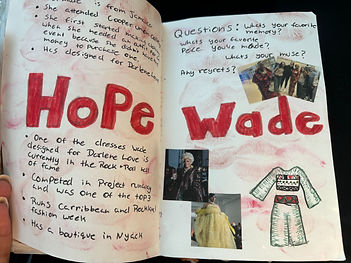 is from Jamaica
• She attended Cooper Union
• She first started
when she needed an
event because she didn't
money to purchase one.
• Has designed for Darlene Love
HOPE
• One of the dresses Wade
designed for Darlene Love is
currently in the Rock + Roll Hall
of fame
• Competed in Project runway
and was one of the top 3
• Runs Carribbean and Rockland
fashion week
• Has a boutique in Nyack
Questions: Whats your favorite
memory?
Whats your favorite
Peice you've made?
Whats your muse?
Any regrets?
Wade